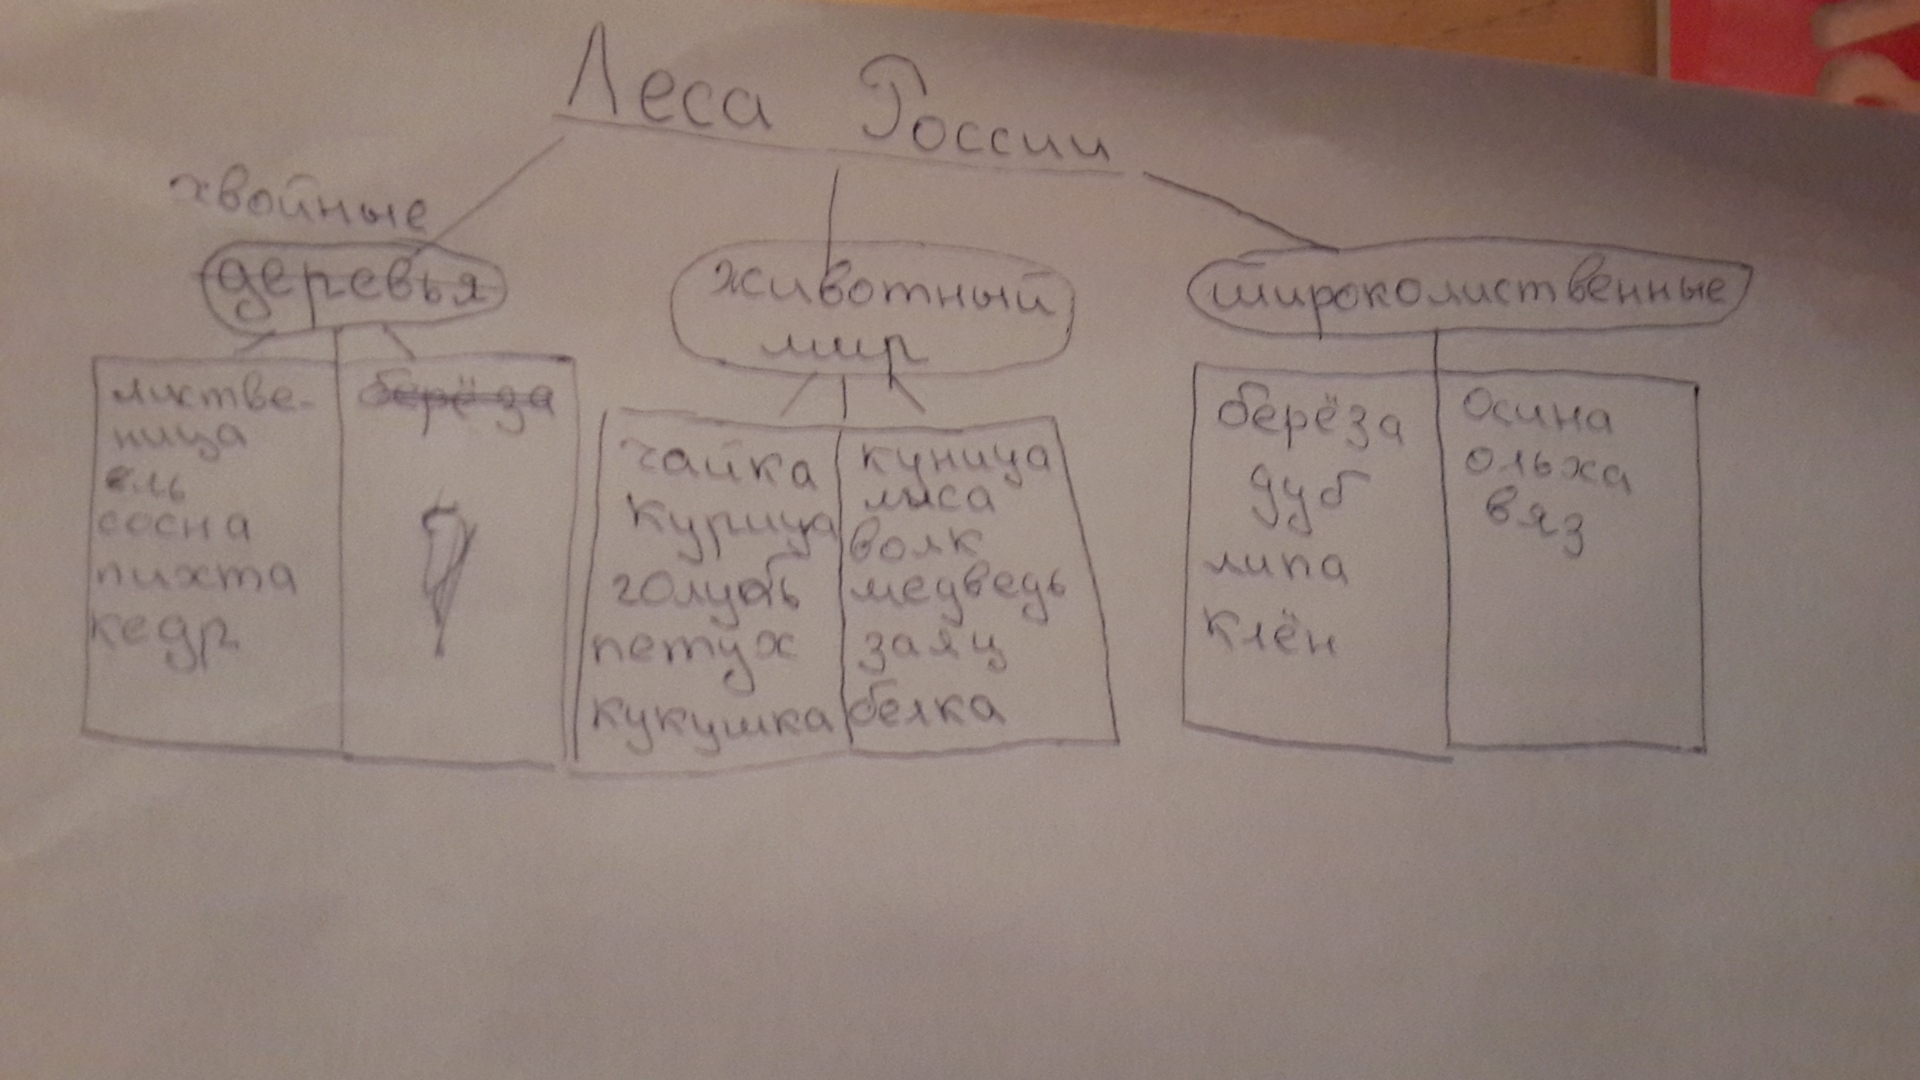 Леса России
хвойные
деревья
листве-
ница
ель
сосна
пихта
кедр
берёза
животный
мир
чайка
курица
голубь
петух
кукушка
куница
лиса
волк
медведь
заяц
белка
широколиственные
берёза
дуб
липа
клён
осина
ольха
вяз